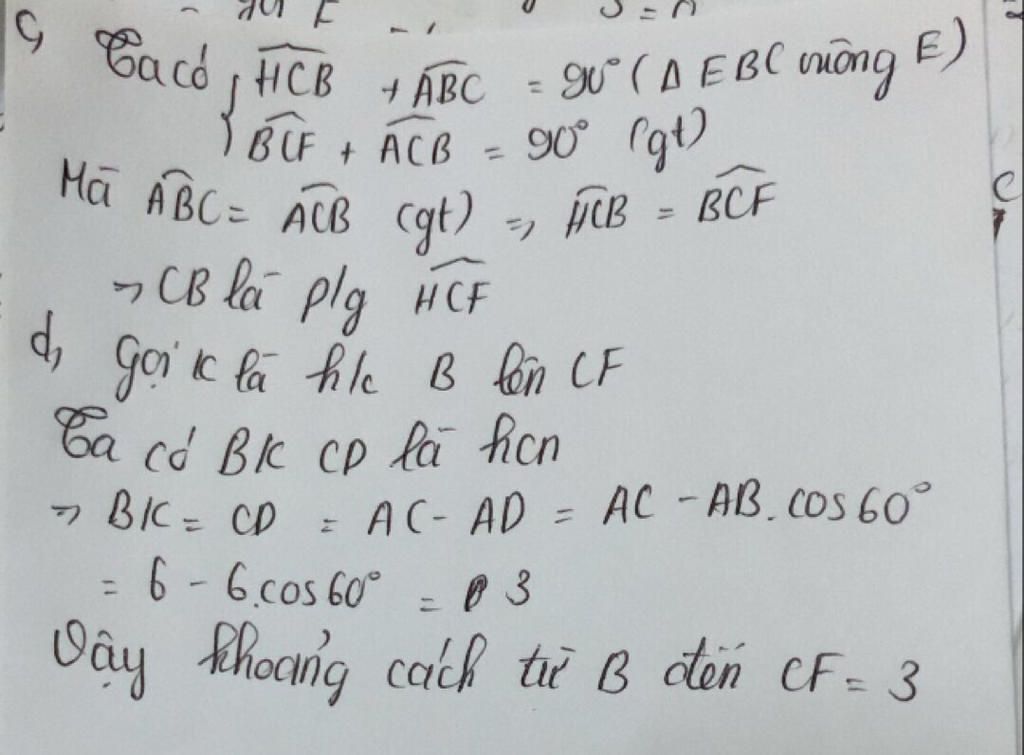 c, Ta có { HCB + ABC = 90° (Δ EBC vuông E)
BCF + ACB = 90° (gt)
Mà ABC = ACB (gt) => HCB = BCF
=> CB là p/g HCF
d, Gọi K là h/c B lên CF
Ta có BK CD là hcn
=> BK = CD = AC - AD = AC - AB.cos60°
= 6 - 6.cos60° = 3
Vậy khoảng cách từ B đến CF = 3